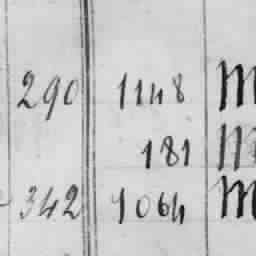 290 1148 M
181 M
342 1064 M